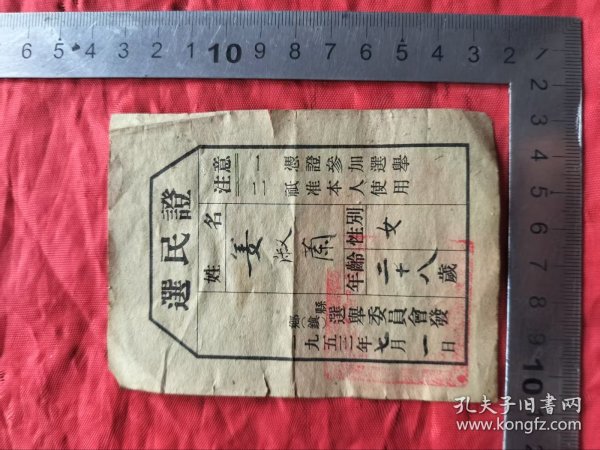 選民證
注意
一 憑證參加選舉
二 祗准本人使用
姓名 姜淑蘭
性別 女
年齡 二十八歲
縣鄉(鎮)選舉委員會發
一九五三年七月一日
6 5 4 3 2 1 10 9 8 7 6 5 4 3 2 1
1 2 3 4 5 6 7 8 9 10
孔夫子旧书网
www.kongfz.com